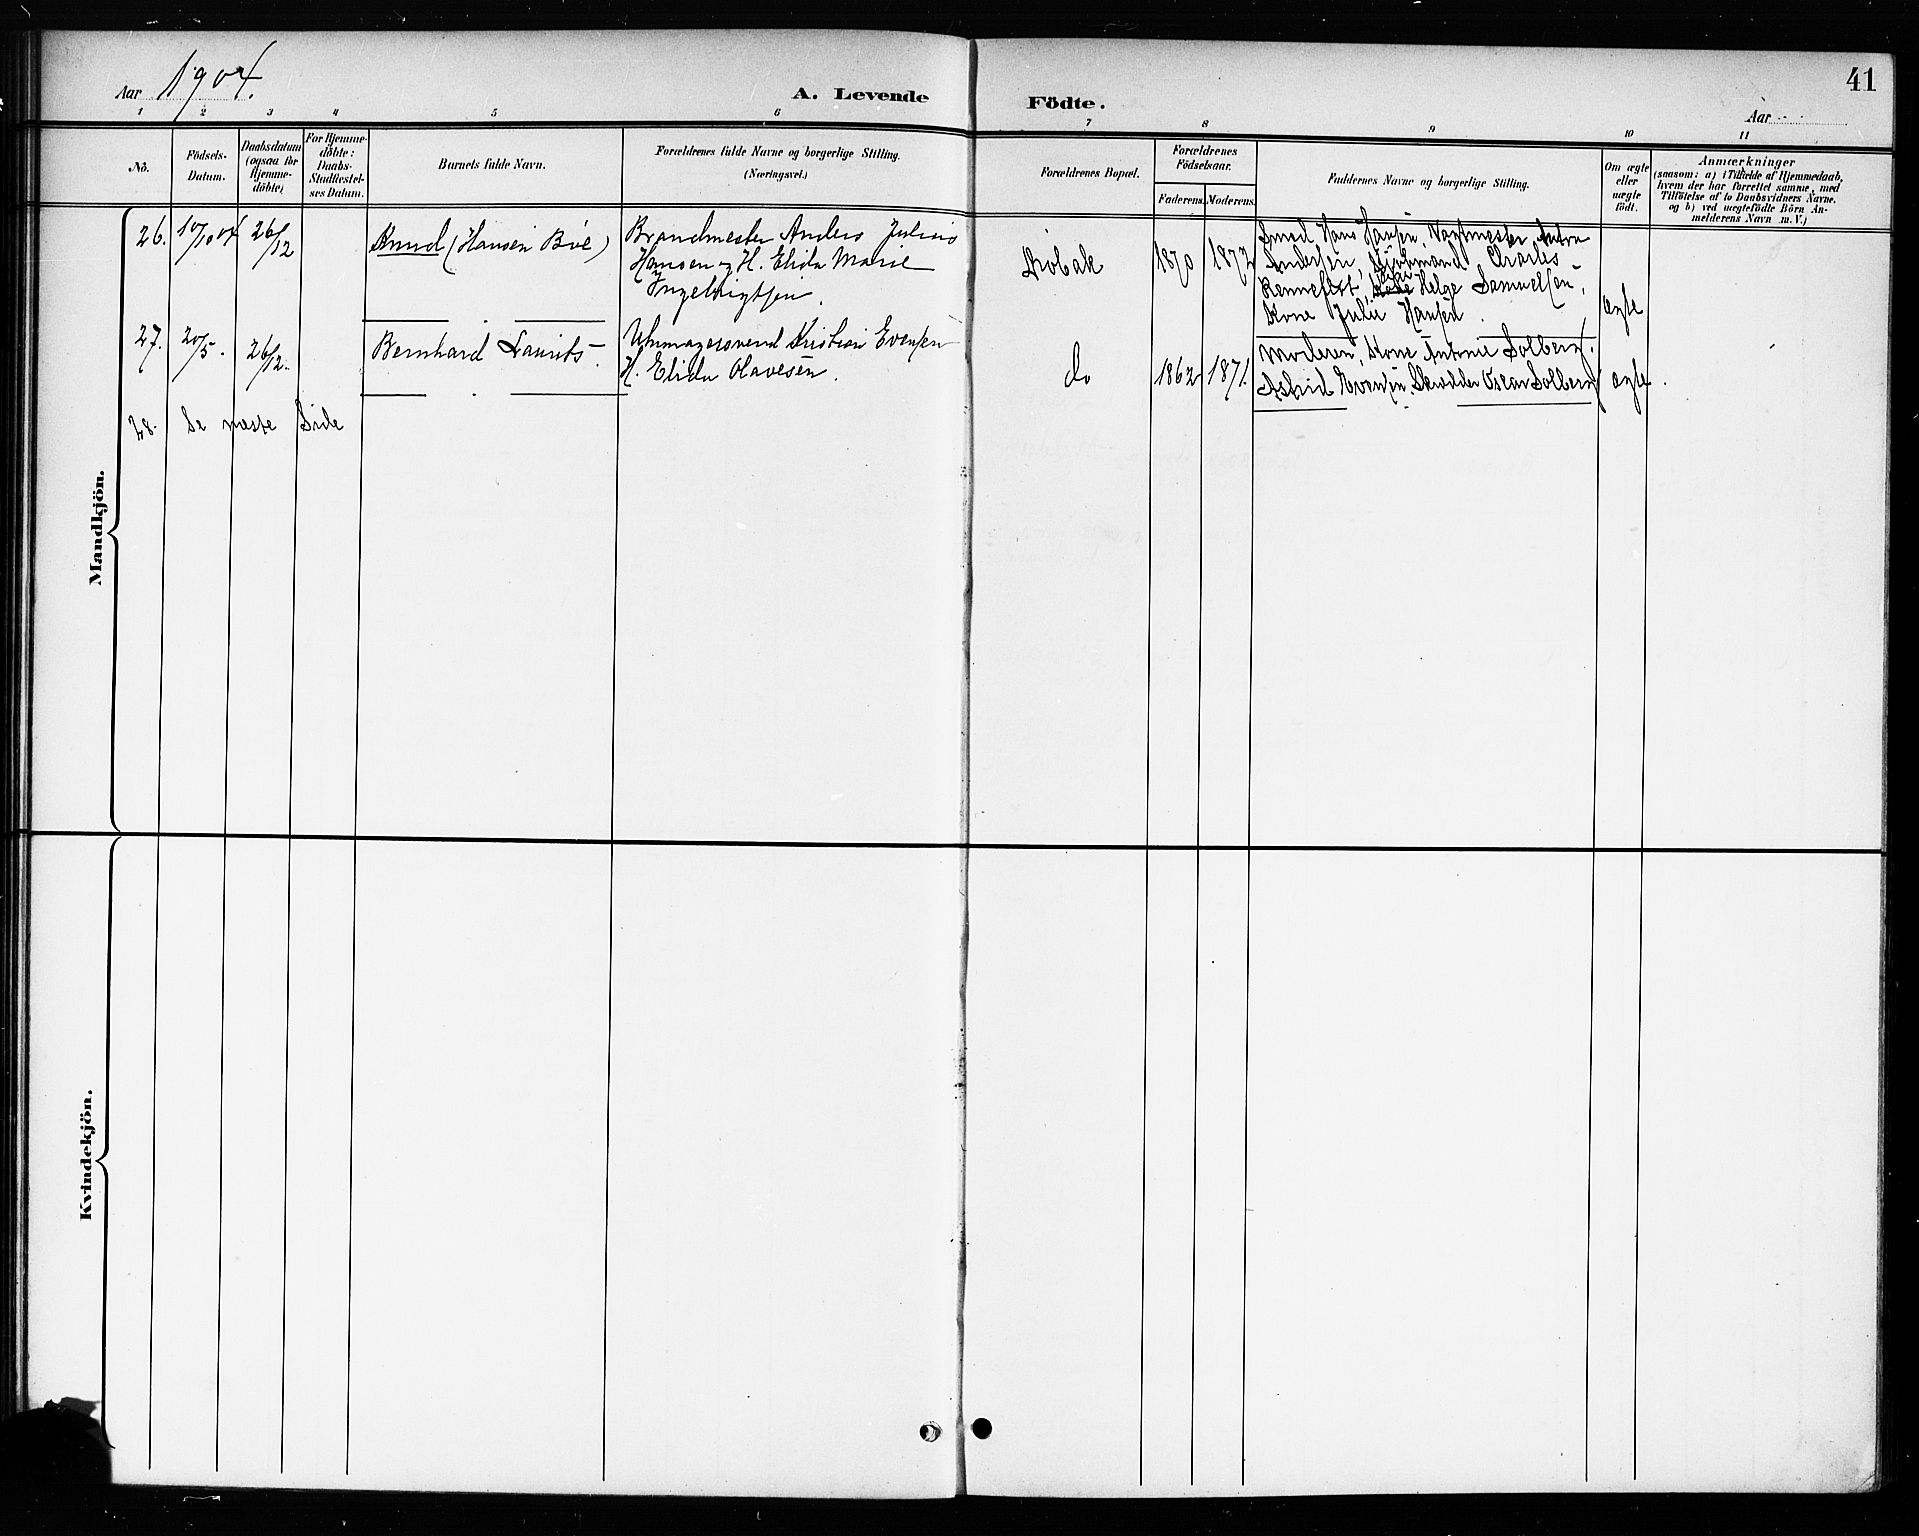 41
Aar 1904.
A. Levende Födte.
Aar
1 2 3 4 5 6 7 8 9 10 11
No.
Födsels-Datum.
Daabsdatum (ogsaa for Hjemme-döbte)
For Hjemme-döbte: Daabs-Stadfæstel-ses Datum.
Barnets fulde Navn.
Forældrenes fulde Navne og borgerlige Stilling.
(Næringsvei.)
Forældrenes Bopæl.
Forældrenes Födselsaar.
Faderens. Moderens.
Faddernes Navne og borgerlige Stilling.
Om ægte eller uægte födt.
Anmærkninger
(saasom: a) i Tilfælde af Hjemmedaab, hvem der har forrettet samme, med Tilföielse af to Daabsvidners Navne. og b) ved uægtefödte Börn An-melderens Navn m. V.)
Mandkjön.
26. 10/10 04 26/12 Knud (Hansen Bve)
Brandmester Anders Julius
Hansen og H. Elida Marie
Ingebrigtsen.
Dröbak 1870 1872
Smed Hans Hansen, Vagtmester
Andersen, Charles
Helge Samuelsen,
Kone Julie Hansen.
ægte
27. 20/5. 26/12. Bernhard Laurits.
Uhrmagersvend Kristian Evensen
H. Elida Olavesen.
do 1862 1871.
Moderen, Kone Antonie Solberg.
Astrid Evensen, Skrædder Oscar Solberg
ægte.
28. Se næste Side
Kvindekjön.